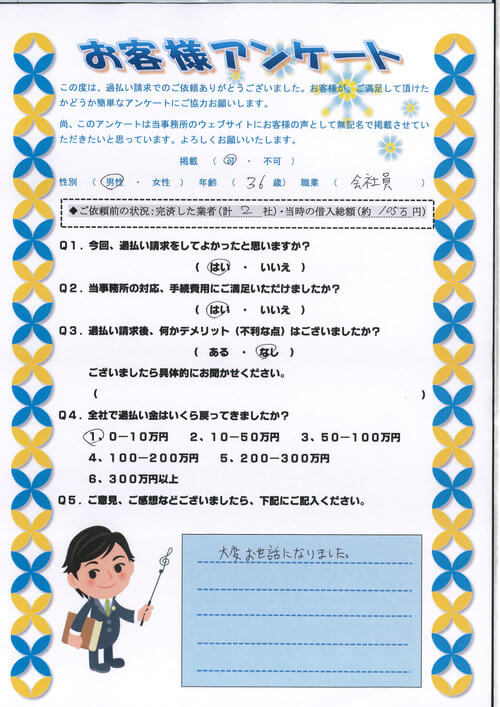 お客様アンケート
この度は、過払い請求でのご依頼ありがとうございました。お客様が、ご満足して頂けた
かどうか簡単なアンケートにご協力お願いします。
尚、このアンケートは当事務所のウェブサイトにお客様の声として無記名で掲載させてい
ただきたいと思っています。よろしくお願いいたします。
掲載 ( 可 ・ 不可 )
性別 ( 男性 ・ 女性 ) 年齢 ( 36 歳) 職業 ( 会社員 )
◆ご依頼前の状況:完済した業者(計 2 社)・当時の借入総額(約 105万円)
Q1.今回、過払い請求をしてよかったと思いますか?
( はい ・ いいえ )
Q2.当事務所の対応、手続費用にご満足いただけましたか?
( はい ・ いいえ )
Q3.過払い請求後、何かデメリット(不利な点)はございましたか?
( ある ・ なし )
ございましたら具体的にお聞かせください。
( )
Q4.全社で過払い金はいくら戻ってきましたか?
1、0-10万円 2、10-50万円 3、50-100万円
4、100-200万円 5、200-300万円
6、300万円以上
Q5.ご意見、ご感想などございましたら、下記にご記入ください。
大変お世話になりました。